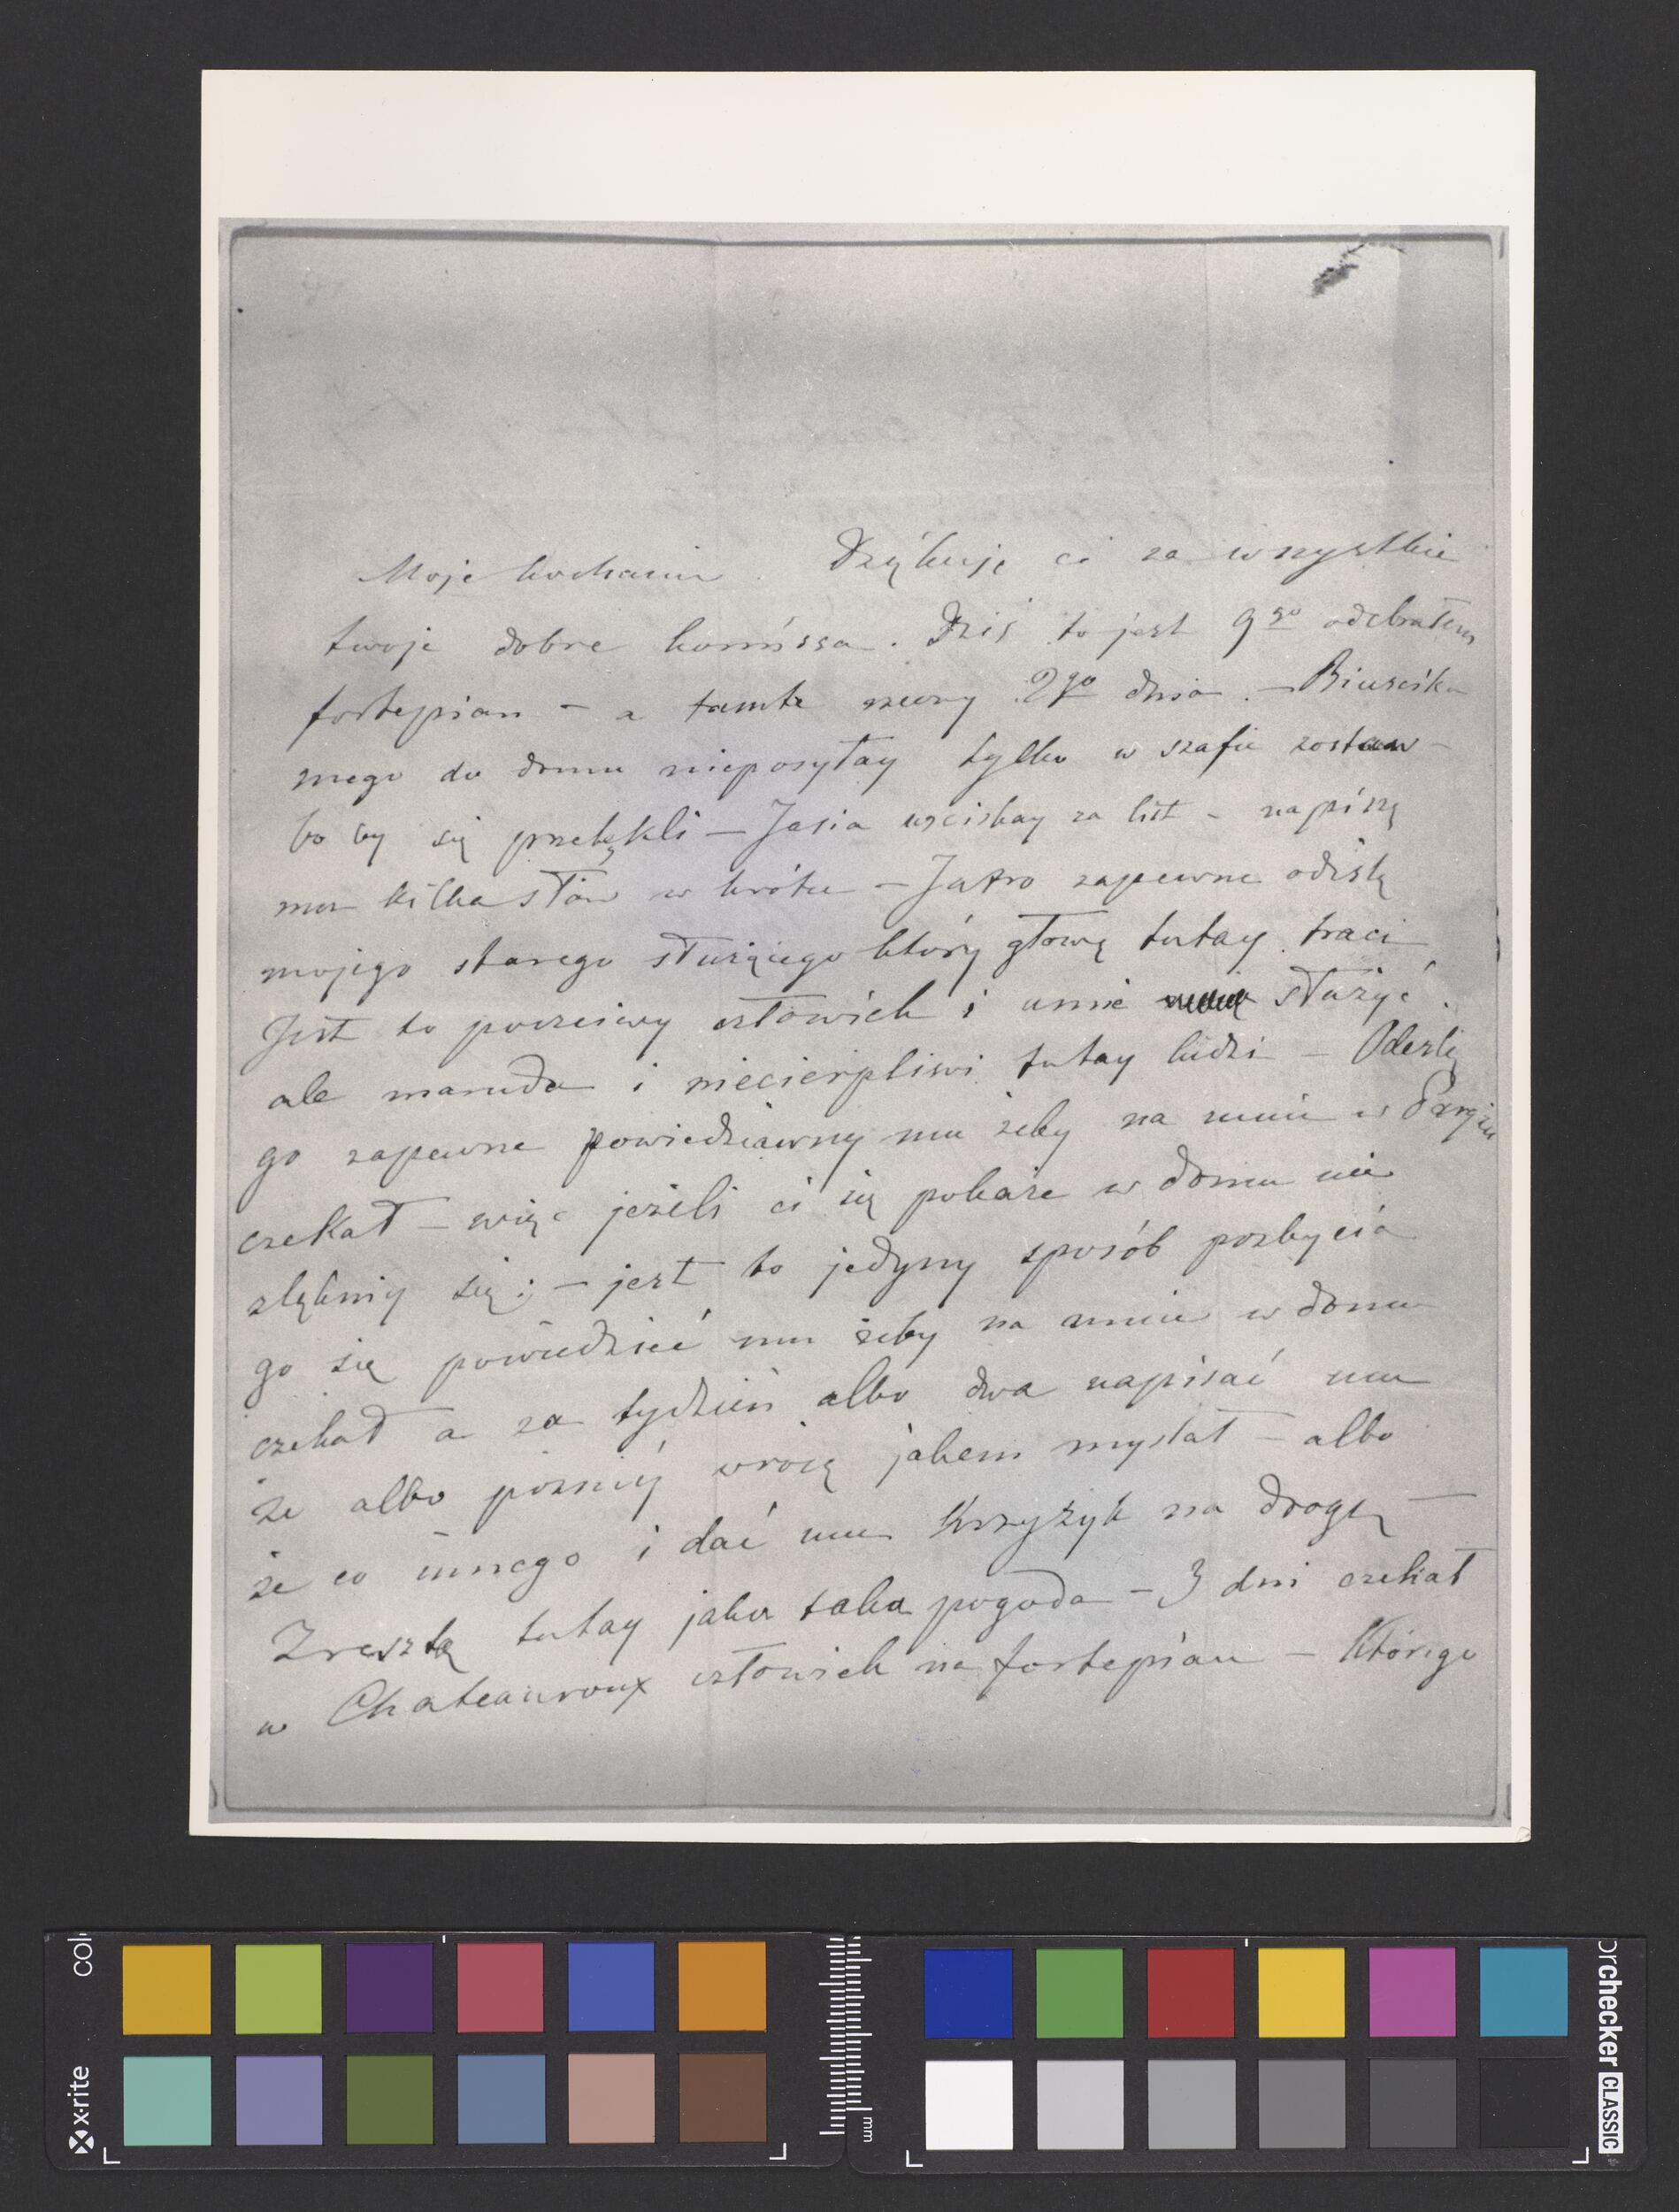 Moje kochanie. Dzękuję ci za wszystkie
twoje dobre komissa. Dziś to jest 9go odebrałem
fortepian – a tamte rzeczy 2go dnia. – Biurcika
mego do domu nieposyłay tylko w szafie zostaw –
bo by się przelękli – Jasia usciskay za list – napiszę
mu kilka słów w krótce – Jutro zapewne odislę
mojego starego służącego który głowę tutay traci
Jest to poczciwy człowiek i umie służyć.
ale maruda i niecierpliwi tutay ludzi – Odeszlę
go zapewne powiedziawszy mu żeby na mnie w Paryżu
czekał – więc jeżeli ci się pokaże w domu nie
zlęknij się; – jest to jedyny sposób pozbycia
go się powiedzieć mu żeby na mnie w domu
czekał a za tydzień albo dwa napisać mu
że albo pozniéj wrócę jakem myslał – albo
że co innego i dać mu Krzyżyk na drogę –
Zresztą tutay jaka taka pogoda – 3 dni czekał
w Chateauroux człowiek na fortepian – Którego
x-rite
colorchecker CLASSIC
mm